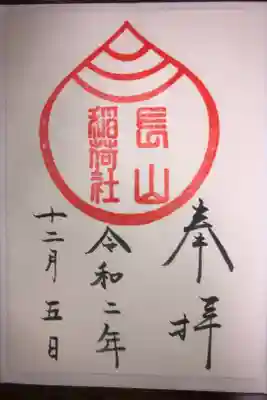 長山
稲荷社
奉拝
令和二年
十二月五日